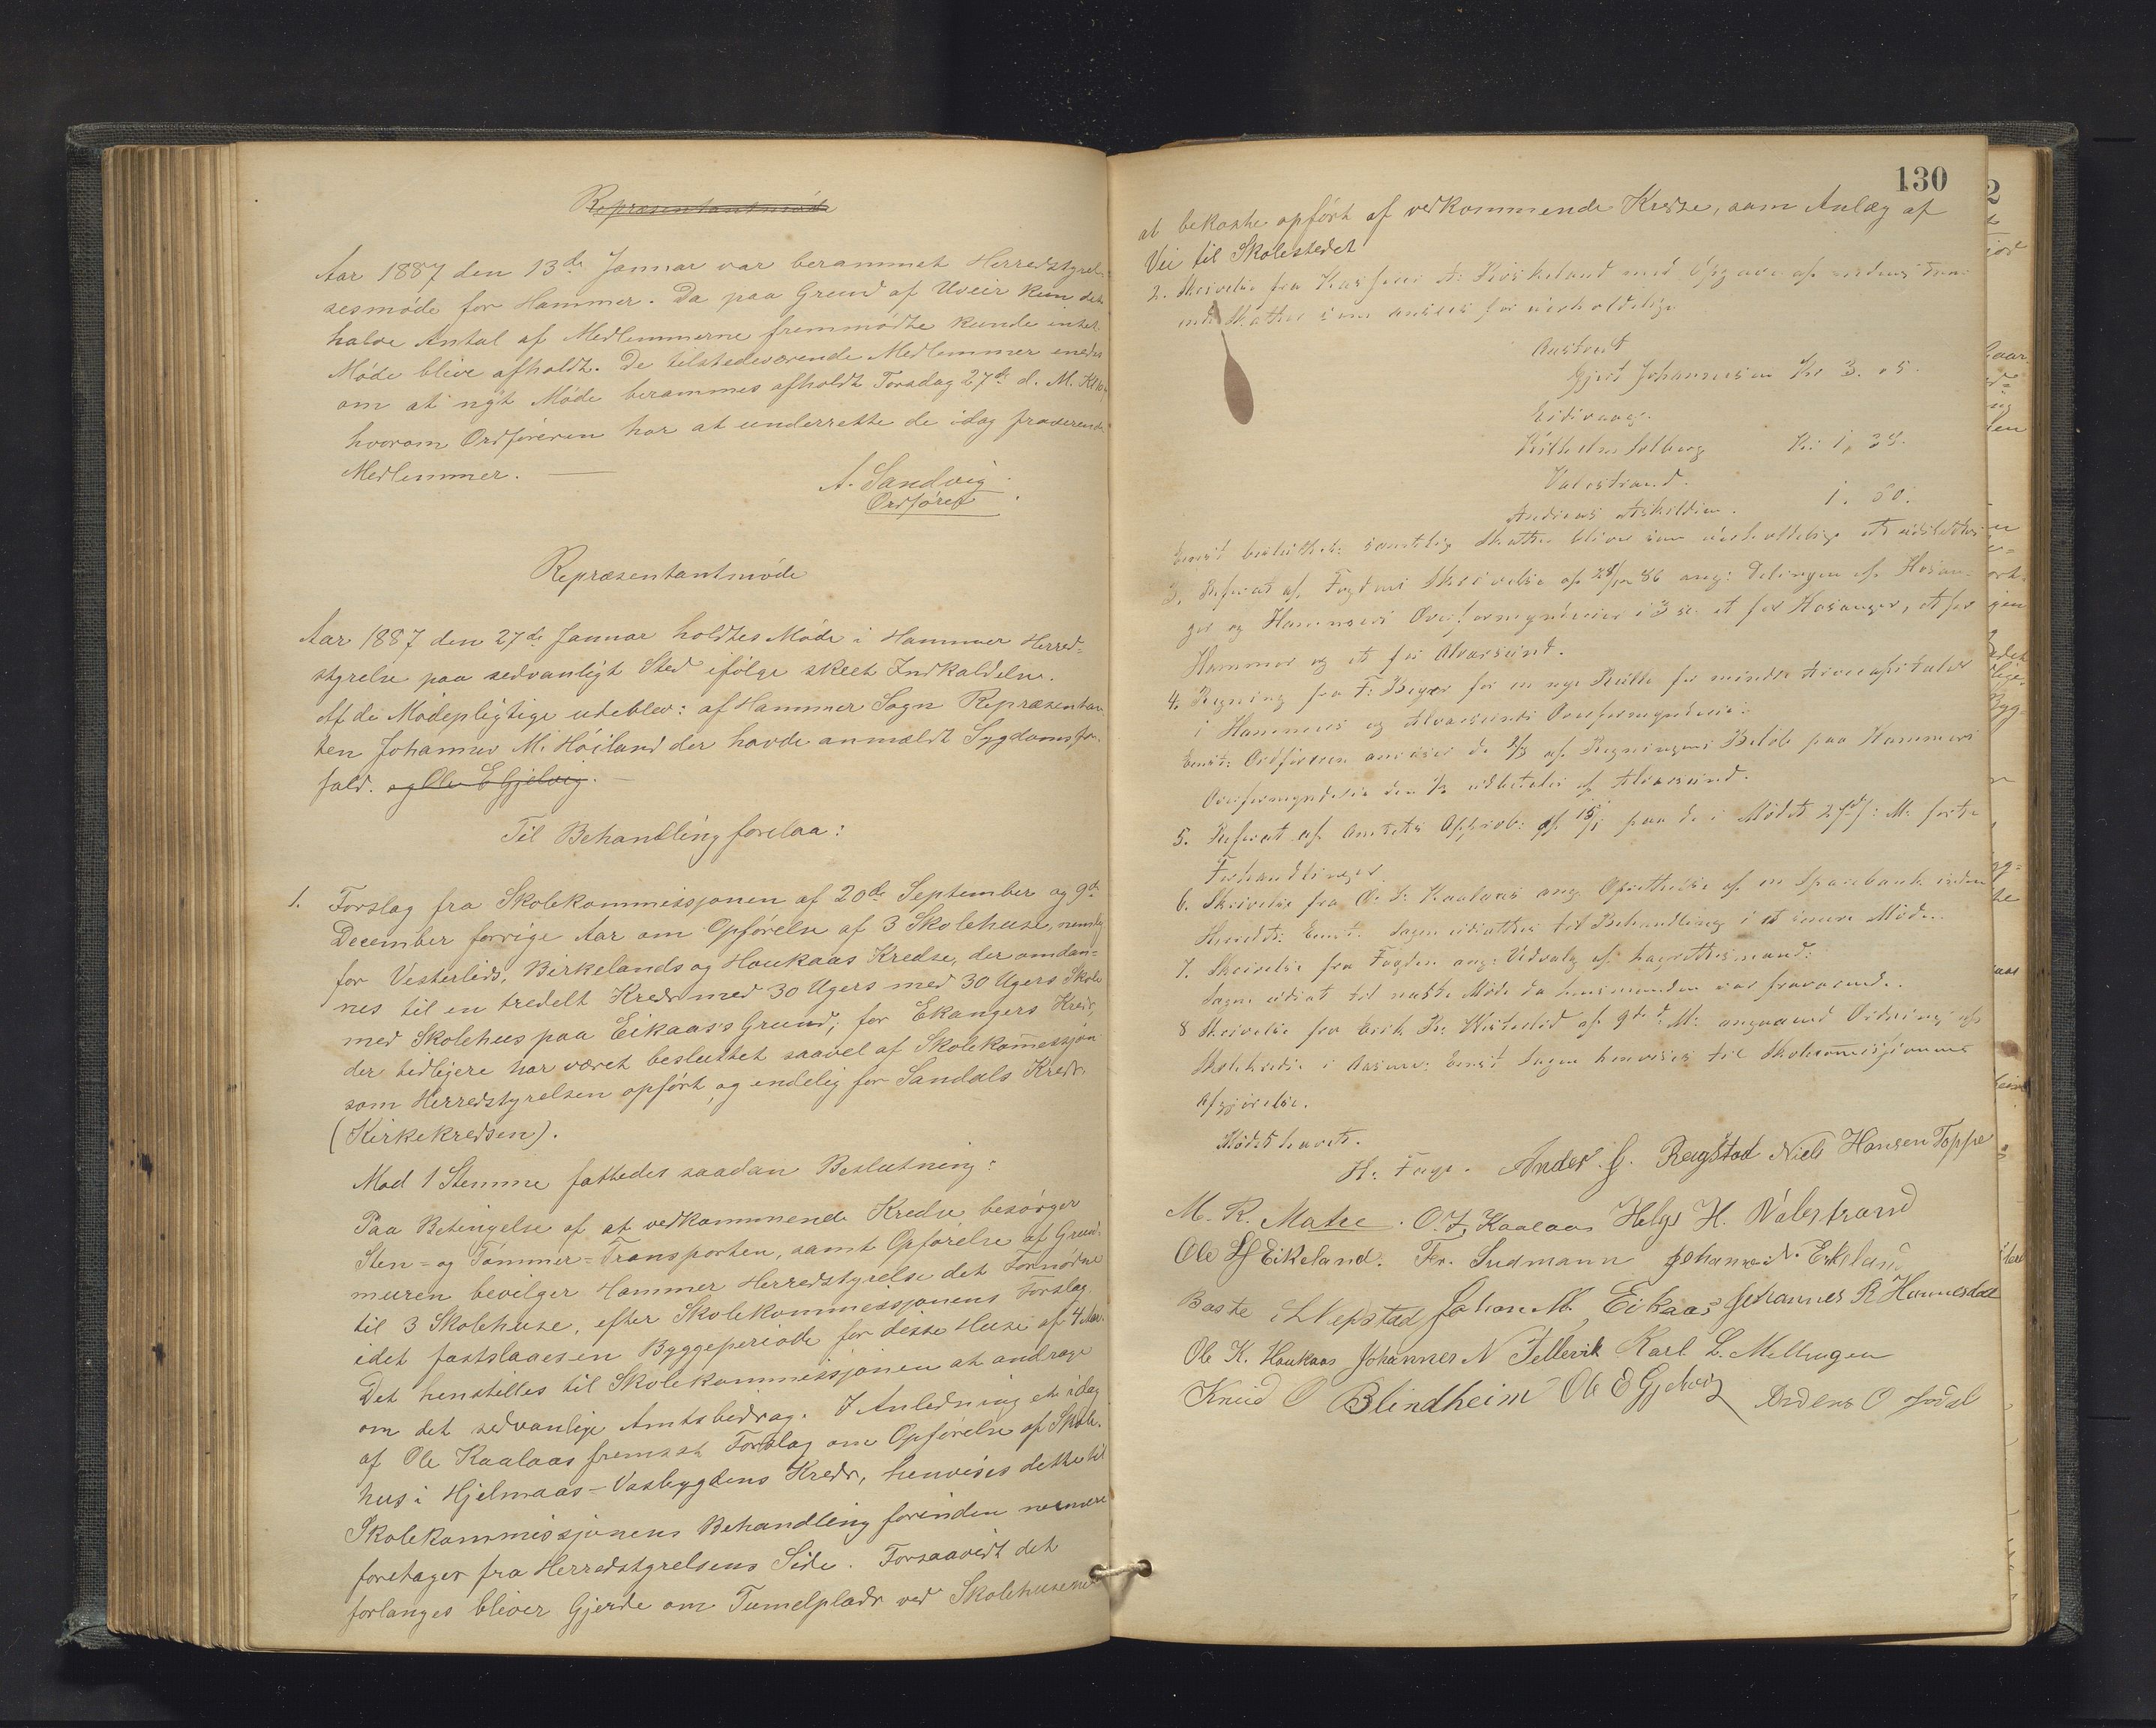 Repræsentantmöde
Aar 1887 den 13de Januar var berammet Herredstyrel-
sesmöde for Hammer. Da paa Grund af Uveir kun det
halve Antal af Medlemmerne fremmödte kunde intet
Möde blive afholdt. De tilstedeværende Medlemmer enedes
om at nyt Möde berammes afholdt Torsdag 27de d. M. Kl 10
hvorom Ordföreren har at underrette de idag fraværende
Medlemmer.
A. Sandvig
Ordförer
Repræsentantmöde
Aar 1887 den 27de Januar holdtes Möde i Hammer Herred-
styrelse paa sedvanligt Sted ifölge skeet Indkaldelse.
Af de Mödepligtige udeblev: af Hammer Sogn Repræsentan-
ten Johannes M. Höiland der havde anmeldt Sygdomsfor-
fald. og Ole E Gjelvig.
Til Behandling forelaa:
1. Forslag fra Skolekommissjonen af 20de September og 9de
December forrige Aar om Opförelse af 3 Skolehuse, nemlig
for Vesterlids, Birkelands og Haukaas Kredse, der omdan-
nes til en tredelt Kreds med 30 Ugers med 30 Ugers Skole
med Skolehus paa Eikaas's Grund; for Ekangers Kreds,
der tidligere har været besluttet saavel af Skolekommissjon
som Herredstyrelsen opfört, og endelig for Sandals Kreds.
(Kirkekredsen).
Mod 1 Stemme fattedes saadan Beslutning:
Paa Betingelse af at vedkommende Kredse besörger
Sten- og Tömmer-Transporten, samt Opförelse af Grund-
muren bevilger Hammer Herredstyrelse det Fornödne
til 3 Skolehuse, efter Skolekommissjonens Forslag
idet fastslaaes en Byggeperiode for disse Huse af 4 Aar.
Det henstilles til Skolekommissjonen at andrage
om det sedvanlige Amtsbidrag. I Anledning et idag
af Ole Kaalaas fremsat Forslag om Opförelse af Skole-
hus i Hjelmaas-Vasbygdens Kreds, henvises dette til
Skolekommissjonens Behandling forinden nærmere
foretages fra Herredstyrelsens Side. Forsaavidt det
forlanges bliver Gjerde om Tumelplads ved Skolehusene
130
at bekoste opfört af vedkommende Kredse, som Anlæg af
Vei til Skolestedet
2. Skrivelse fra Kasserer A. Birkeland med Opgave af
Skatter som ansees for uerholdelige
Gjert Johannesen Kr 3.05.
Eidsvaag.
Vilhelm Solberg Kr. 1,38.
Valestrand.
Andreas Askildsen. 1.50.
Eenst. besluttet: samtlig Skatter bliver som uerholdelige at udslette
3. Referat af Fogdens Skrivelse af 28/12 86 ang. Delingen af Hosan-
ger og Hammers Overformynderier i 3 et for Hosanger, et for
Hammer og et for Alversund.
4. Regning fra F. Beyer for en ny for mindre Arvecapitaler
i Hammers og Alversunds Overformynderi:
Eenst: Ordföreren anviser de 2/3 af Regningens Belöb paa Hammers
Overformynderi den 1/3 udbetales af Alversund.
5. Referat af Amtets Approb: af 15/1 paa de i Mödet f. M. förte
Forhandlinger.
6. Skrivelse fra O. I. Kaalaas ang. Oprettelse af en Sparebank inden
Herredet. Eenst. Sagen udsættes til Behandling i et senere Möde.
7. Skrivelse fra Fogden ang. Udvalg af Lagrettesmænd:
Sagen udsat til næste Möde da var fraværende.
8 Skrivelse fra Erik Vesterlid af 9de d. M. angaaende af
Skolekredse i Eenst Sagen henvises til Skolecommissjonens
Afgjörelse.
Mödet hævet.
H. Fage. Anders G. Rægstad Niels Hansen Toppe
M. R. Matre. O. I. Kaalaas Helge H. Valestrand
Ole Eikeland. Fr. Sudmann Johannes N. Eikeland
Baste Nepstad Johan M. Eikaas Johannes R Hannesdal
Ole K. Haukaas Johannes N Tellevik Karl L. Mellingen
Knud O Blindheim Ole E Gjelvig Anders O